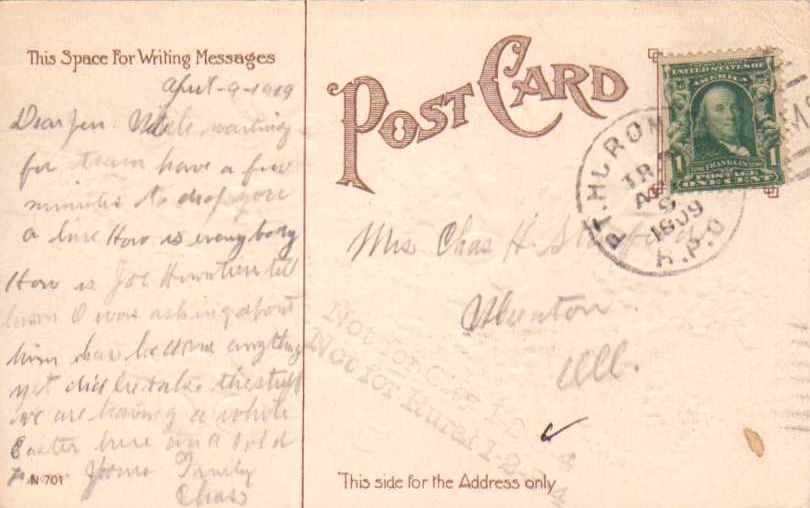 This Space For Writing Messages
POST CARD
April-9-1909
Dear Jen. While waiting
for train have a few
minutes to drop you
a line How is everybody
How is Joe tell
him I was asking about
him has he done anything
yet did he take the stuff
we are having a white
Easter here and a cold
Yours Truly
Chas
N 701
UNITED STATES OF
AMERICA
1 FRANKLIN 1
POSTAGE
ONE CENT
PT. HURON
TR
9
1909
R.P.O
Mrs Chas H.
Wheaton
Ill.
Not for City 1-2-3-4
Not for Rural 1-2-3-4
This side for the Address only